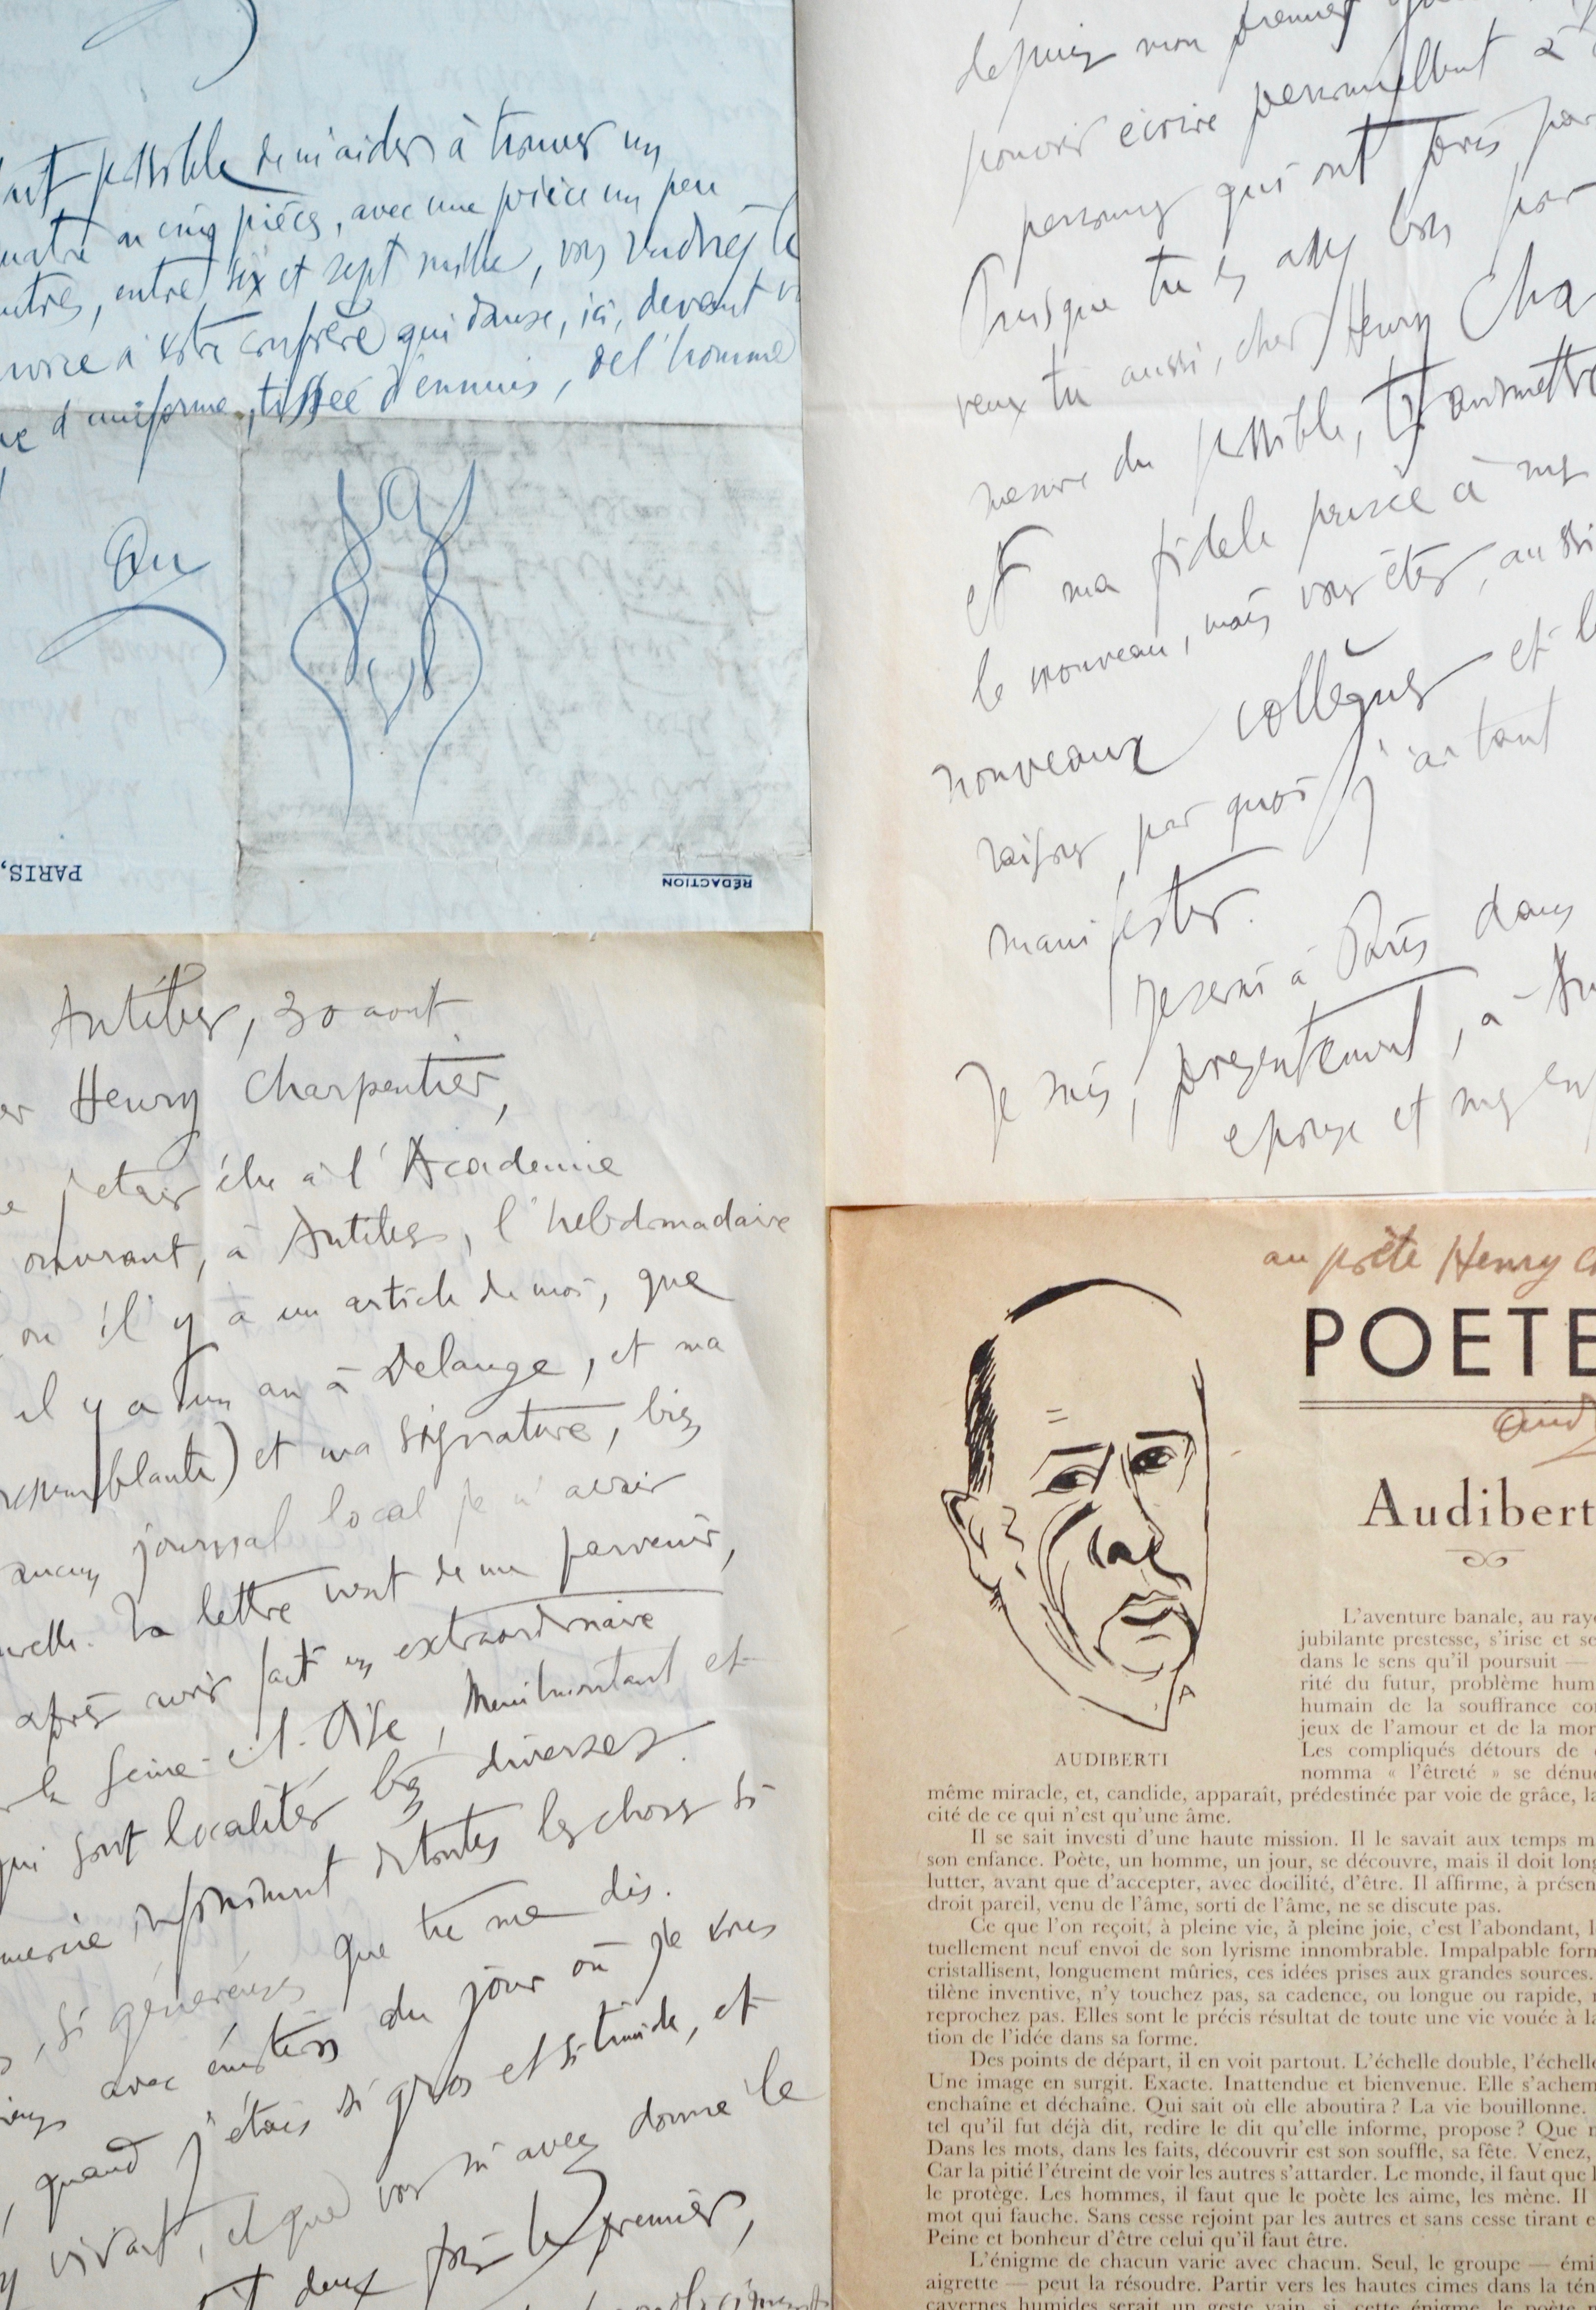 possible de m'aider à trouver un
ou cinq pièces, avec une pièce un peu
entre six et sept mille, vous
à votre confrère qui danse, ici, devant
d'uniforme, tissée d'ennuis, de l'homme
Au
PARIS,
RÉDACTION
depuis mon premier
pouvoir écrire personnellement à
qui ont pris par
Puisque tu es
veux tu aussi, cher Henry Cha
mesure du possible, transmettre
et ma fidèle pensée à mes
le nouveau, mais vous êtes, aussi
nouveaux collègues et l
raisons par quoi j'ai tant
manifester.
Je serai à Paris dans
Je suis, présentement, à An
epouse et mes en
Antibes, 30 aout
er Henry Charpentier,
j'étais élu à l'Académie
ouvrant, à Antibes, l'hebdomadaire
ou il y a un article de moi, que
il y a un an à Delange, et ma
ressemblante) et ma signature, bien
aucun journal local je n'avais
La lettre vient de me parvenir,
après avoir fait un extraordinaire
la Seine-et-Oise, Menilmontant et
qui sont localités bien diverses.
infiniment de toutes les choses si
, si généreuses que tu me dis.
avec émotion du jour où je vous
, quand j'étais si gros et si timide, et
vivant, et que vous m'avez donné le
deux fois le premier,
au poète Henry C
POETE
Audibert
AUDIBERTI
L'aventure banale, au rayo
jubilante prestesse, s'irise et se
dans le sens qu'il poursuit —
rité du futur, problème hum
humain de la souffrance co
jeux de l'amour et de la mor
Les compliqués détours de
nomma « l'êtreté » se dénue
même miracle, et, candide, apparaît, prédestinée par voie de grâce, la
cité de ce qui n'est qu'une âme.
Il se sait investi d'une haute mission. Il le savait aux temps m
son enfance. Poète, un homme, un jour, se découvre, mais il doit long
lutter, avant que d'accepter, avec docilité, d'être. Il affirme, à présen
droit pareil, venu de l'âme, sorti de l'âme, ne se discute pas.
Ce que l'on reçoit, à pleine vie, à pleine joie, c'est l'abondant, l
tuellement neuf envoi de son lyrisme innombrable. Impalpable form
cristallisent, longuement mûries, ces idées prises aux grandes sources.
tilène inventive, n'y touchez pas, sa cadence, ou longue ou rapide, n
reprochez pas. Elles sont le précis résultat de toute une vie vouée à la
tion de l'idée dans sa forme.
Des points de départ, il en voit partout. L'échelle double, l'échelle
Une image en surgit. Exacte. Inattendue et bienvenue. Elle s'achem
enchaîne et déchaîne. Qui sait où elle aboutira ? La vie bouillonne.
tel qu'il fut déjà dit, redire le dit qu'elle informe, propose ? Que n
Dans les mots, dans les faits, découvrir est son souffle, sa fête. Venez,
Car la pitié l'étreint de voir les autres s'attarder. Le monde, il faut que l
le protège. Les hommes, il faut que le poète les aime, les mène. Il
mot qui fauche. Sans cesse rejoint par les autres et sans cesse tirant e
Peine et bonheur d'être celui qu'il faut être.
L'énigme de chacun varie avec chacun. Seul, le groupe — émi
aigrette — peut la résoudre. Partir vers les hautes cimes dans la tén
cavernes humides serait un geste vain, si, cette énigme, le poète n